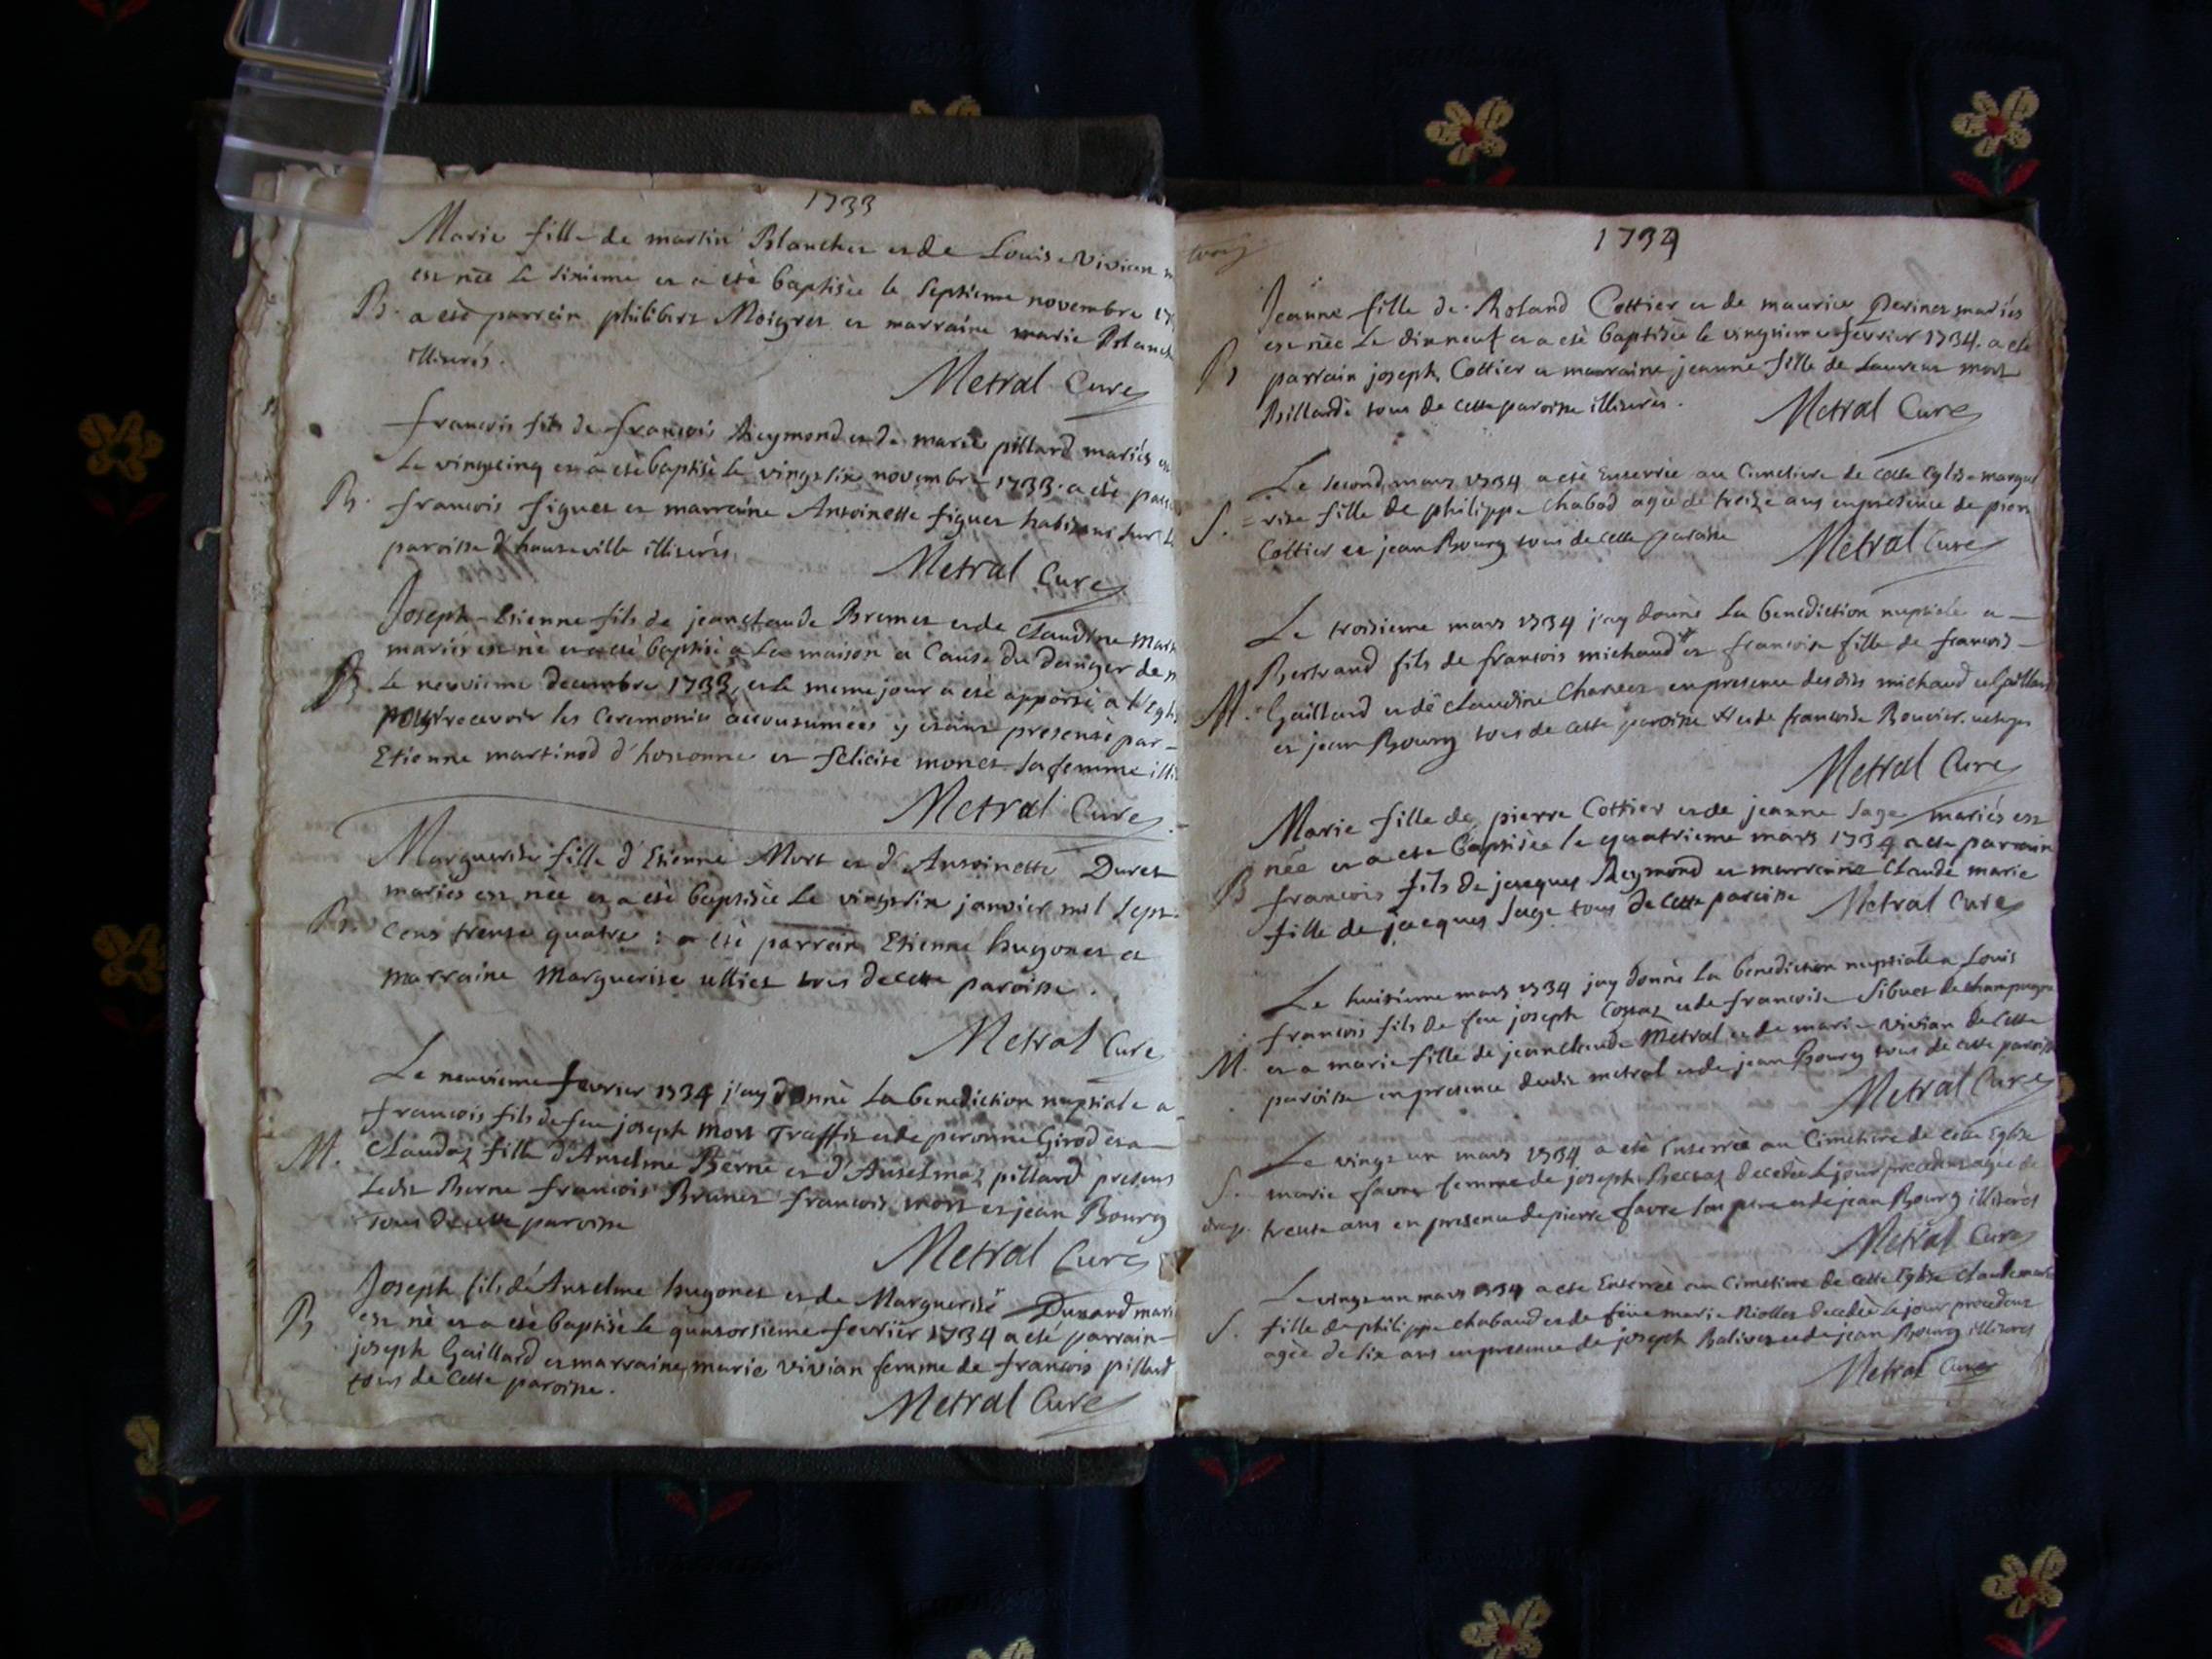 1733
Marie fille de martin Blanchet et de Louise Vivian
est née le sixieme et a été baptisée le septieme novembre
B. a eté parrain philibert Moigret et marraine marie
illiterés.
Metral Curé
francois fils de francois Reymond et de marie pillard mariés
le vingtcinq et a eté baptisé le vingtsix novembre 1733. a été
B. francois figuet et marraine Antoinette figuet habitans sur
paroisse d'hauteville illiterés
Metral Curé
Joseph-Etienne fils de jeanclaude Brunet et de Claudine
mariés est né et a eté baptisé a La maison a Cause du danger de
B. Le neuvieme decembre 1733, et le meme jour a eté apporté a
pour recevoir les Ceremonies accoutumées y etant presenté par
Etienne martinod d'hotonne et felicité monet sa femme
Metral Curé
Marguerite fille d'Etienne Mort et d'Antoinette Duret
mariés est nee et a eté baptisée Le vingtsix janvier mil sept
B. Cens trente quatre : a été parrain Etienne hugonet et
marraine Marguerite ulliet tous de cette paroisse.
Metral Curé
Le neuvieme fevrier 1734 j'ay donné La benediction nuptiale a
francois fils de feu joseph mort Traffit et de peronne Girod et a
M. Claudaz fille d'Anselme Berne et d'Anselmaz pillard presens
Ledit Berne francois Brunet francois mort et jean Bourg
tous de cette paroisse
Metral Curé
Joseph fils d'Anselme hugonet et de Marguerite Durand
B est né et a eté baptisé le quatorsieme fevrier 1734 a eté parrain
joseph Gaillard et marraine marie vivian femme de francois pillard
tous de cette paroisse.
Metral Curé
1734
Jeanne fille de Roland Cottier et de maurise Perinet mariés
est née Le dixneuf et a eté baptisée le vingtieme fevrier 1734. a eté
B parrain joseph Cottier et marraine jeanne fille de Laurent mort
Billard tous de cette paroisse illiterés.
Metral Curé
Le second mars 1734 a eté Enterrée au Cimetiere de cette Eglise margue
S. =rite fille de philippe Chabod agée de treize ans en presence de
Cottier et jean Bourg tous de cette paroisse
Metral Curé
Le troisieme mars 1734 j'ay donné La benediction nuptiale a
Bertrand fils de francois michaud et francoise fille de francois
M. Gaillard et de Claudine Charvet en presence desdits michaud et Gaillard
et jean Bourg tous de cette paroisse # et de francoise Bouvier.
Metral Curé
Marie fille de pierre Cottier et de jeanne Sage mariés est
née et a eté baptisée le quatrieme mars 1734 a eté parrain
B francois fils de jacques Reymond et marraine Claude marie
fille de jacques Sage tous de cette paroisse
Metral Curé
Le huitieme mars 1734 jay donné la benediction nuptiale a Louis
francois fils de feu joseph Cossaz et de francoise Sibuet de champagne
M. et a marie fille de jeanclaude Metral et de marie vivian de cette
paroisse en presence dudit metral et de jean Bourg tous de cette paroisse
Metral Curé
Le vingt un mars 1734 a eté Enterrée au Cimetiere de cette Eglise
S. marie favre femme de joseph decedée le jour precedent agée de
trente ans en presence de pierre favre son pere et de jean Bourg illiterés
Metral Curé
Le vingt un mars 1734 a eté Enterrée au Cimetiere de cette Eglise
S. fille de philippe chabaud et de feue marie Niollet decedée le jour precedent
agée de six ans en presence de joseph Balivet et de jean Bourg illiterés
Metral Curé